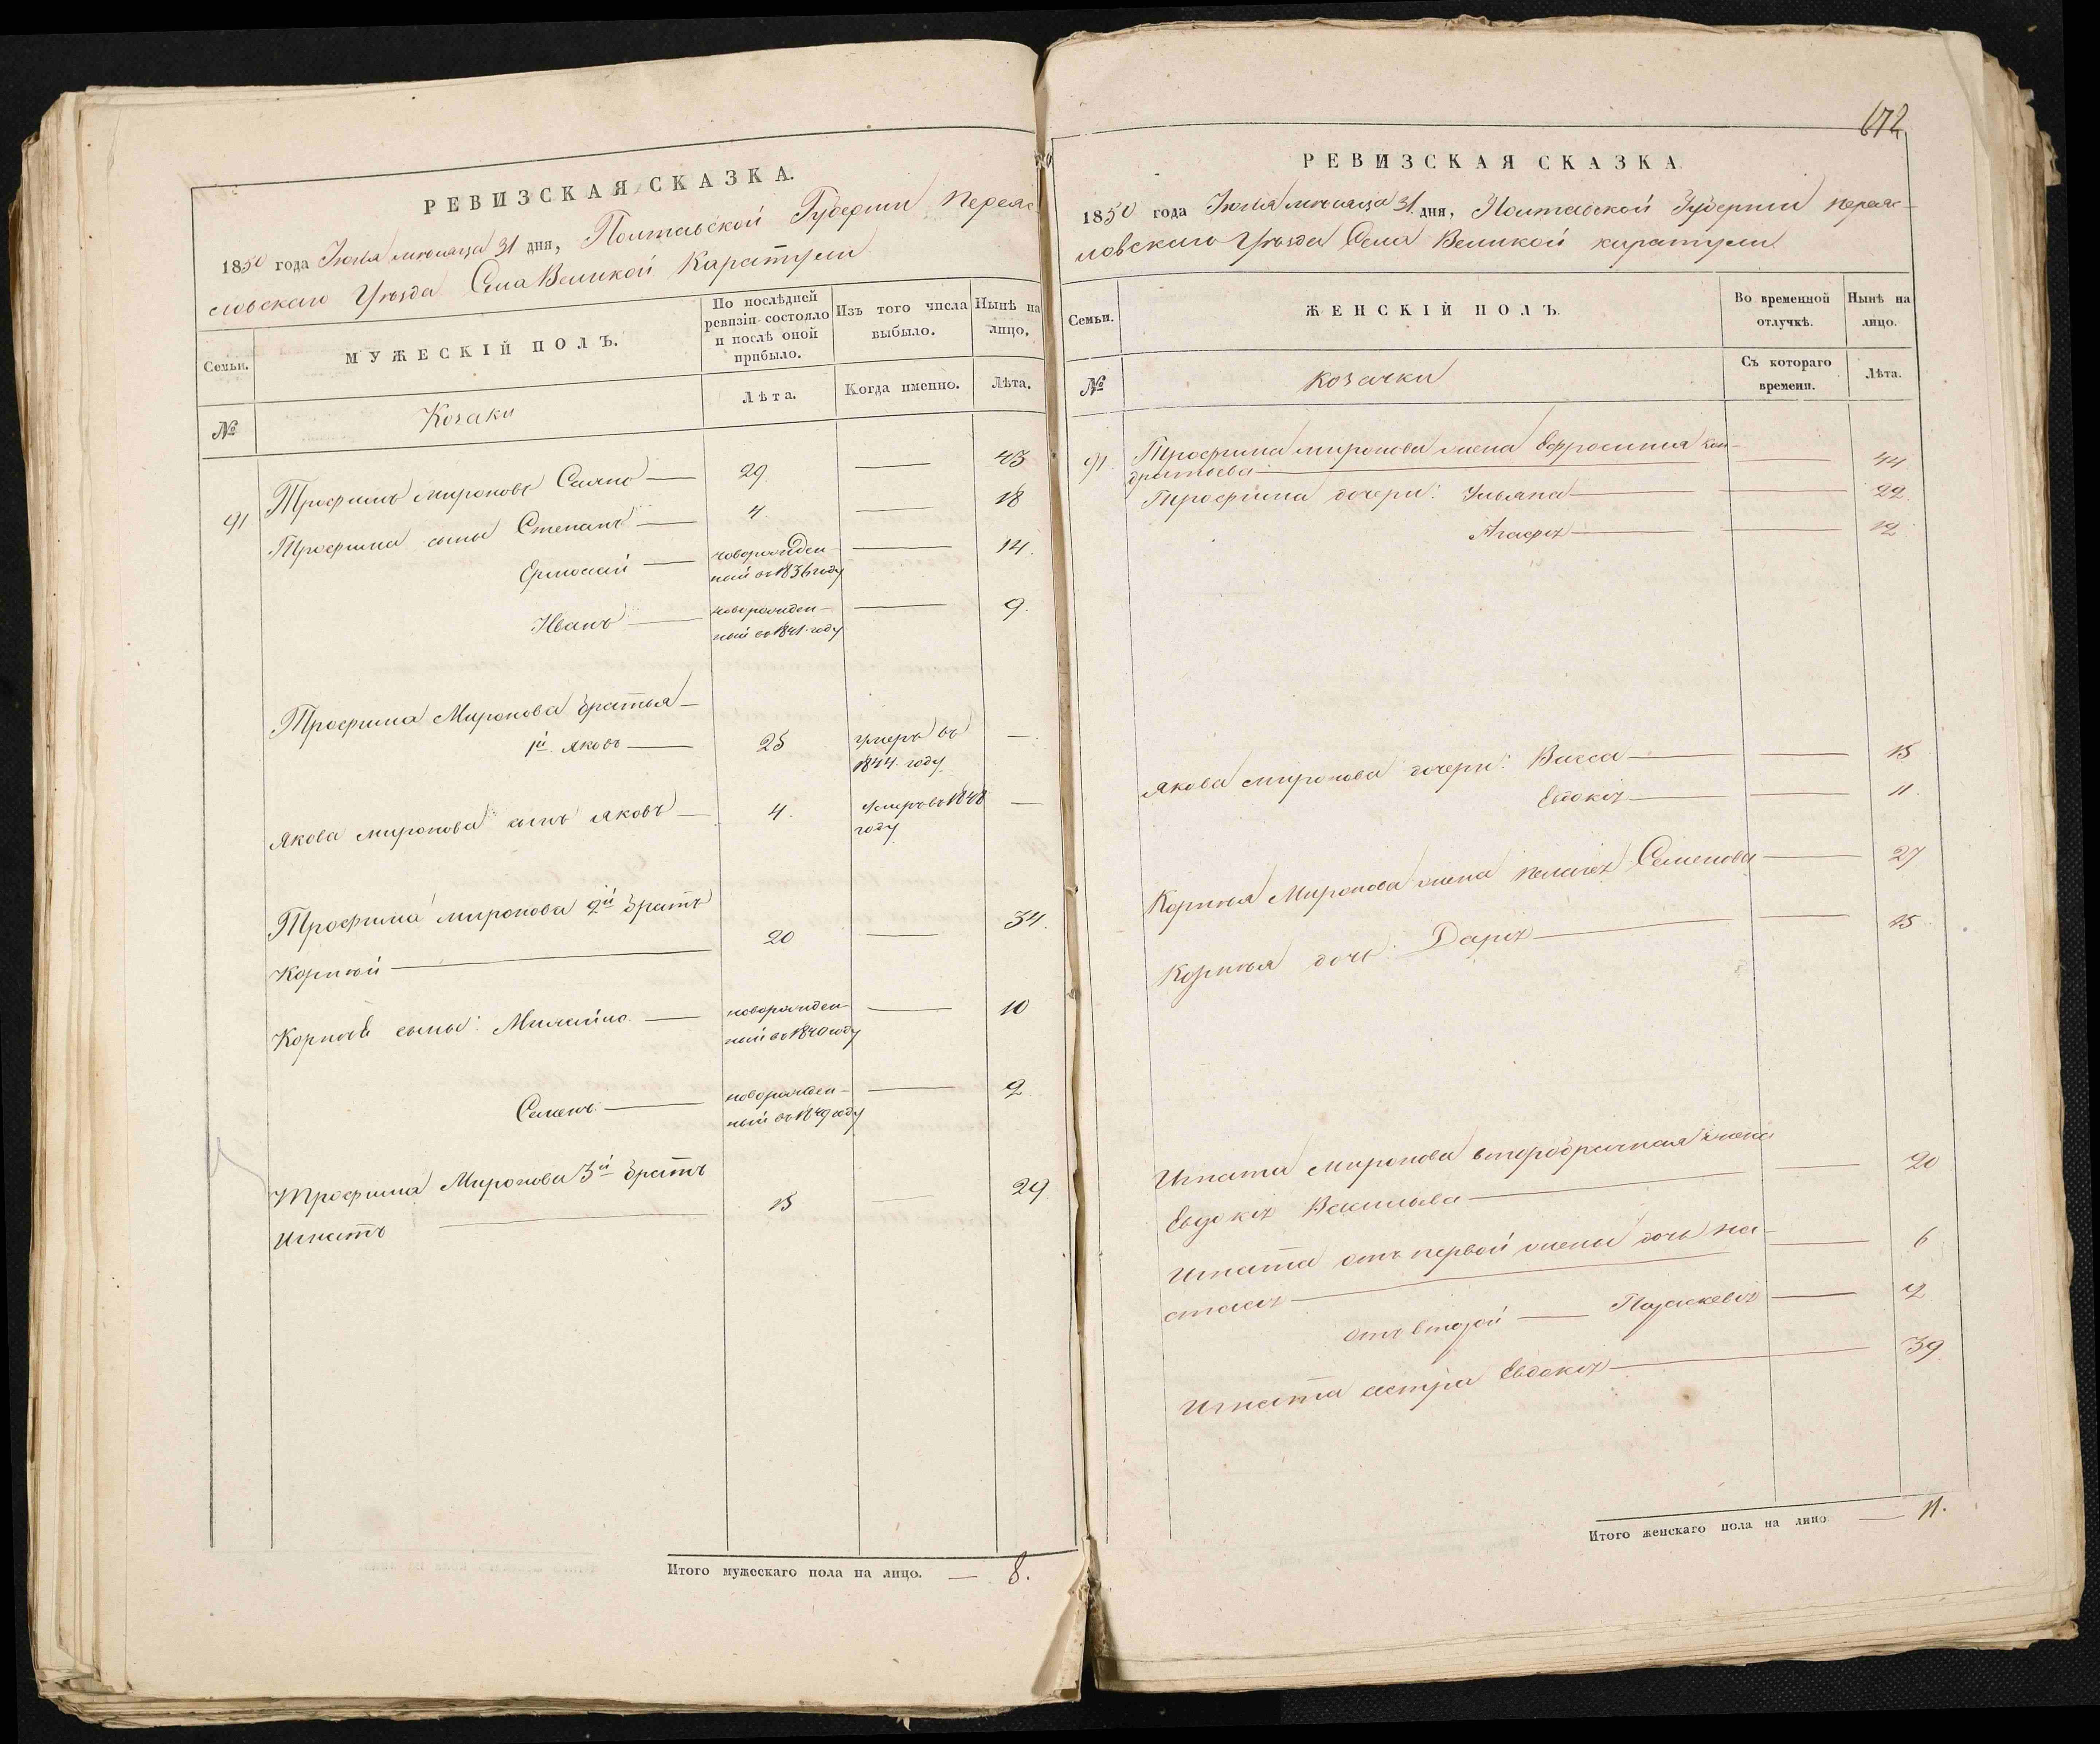 РЕВИЗСКАЯ СКАЗКА.
1850 года Іюлья мѣсяца 31 дня, Полтавской Губерніи Переяс
ловскаго Уѣзда Села Великой Каратули
Семьи.
МУЖЕСКІЙ ПОЛЪ.
По послѣдней ревизіи состояло и послѣ оной прибыло.
Изъ того числа выбыло.
Нынѣ на лицо.
№
Козаки
Лѣта.
Когда именно.
Лѣта.
91 Трофимъ Мироновъ — 29 — 43
Трофима сыны Степанъ — 4. — 18
Ермолай — новорожден- — 14.
ный въ 1836 году
Иванъ — новорожден- — 9.
ный въ 1841 году
Трофима Миронова братья —
1й Яковъ — 25 умеръ въ —
1844 году
Якова Миронова сынъ Яковъ — 4. умеръ въ 1848 —
году
Трофима Миронова 2й братъ
Корнѣй — 20 — 34.
Корнѣя сыны: Михайло — новорожден- — 10
ный въ 1840 году
Семенъ — новорожден- — 2
ный въ 1849 году
Трофима Миронова 3й братъ
Игнатъ — 15 — 29
Итого мужескаго пола на лицо. — 8.
672
РЕВИЗСКАЯ СКАЗКА.
1850 года Іюлья мѣсяца 31 дня, Полтавской Губерніи Переяс-
ловскаго Уѣзда Села Великой Каратули
Семьи.
ЖЕНСКІЙ ПОЛЪ.
Во временной отлучкѣ.
Нынѣ на лицо.
№
Козачки
Съ котораго времени.
Лѣта.
91. Трофима Миронова жена Ефросинія Кон-
дратьева — — 44
Трофима дочери: Ульяна — — 22.
Агафія — — 12
Якова Миронова дочери: Васса — — 15
Евдокія — — 11.
Корнѣя Миронова жена Пелагея Семенова — 27
Корнѣя дочь: Дарія — — 15.
Игната Миронова второбрачная жена
Евдокія Васильева — — 20
Игната отъ первой жены дочь На-
стасія — — 6
отъ второй — Параскевія — 2
Игната сестра Евдокія — 39
Итого женскаго пола на лицо — 11.